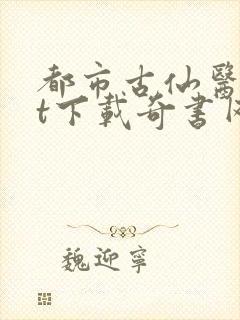 都市古仙醫
t下載奇書
魏迎寧